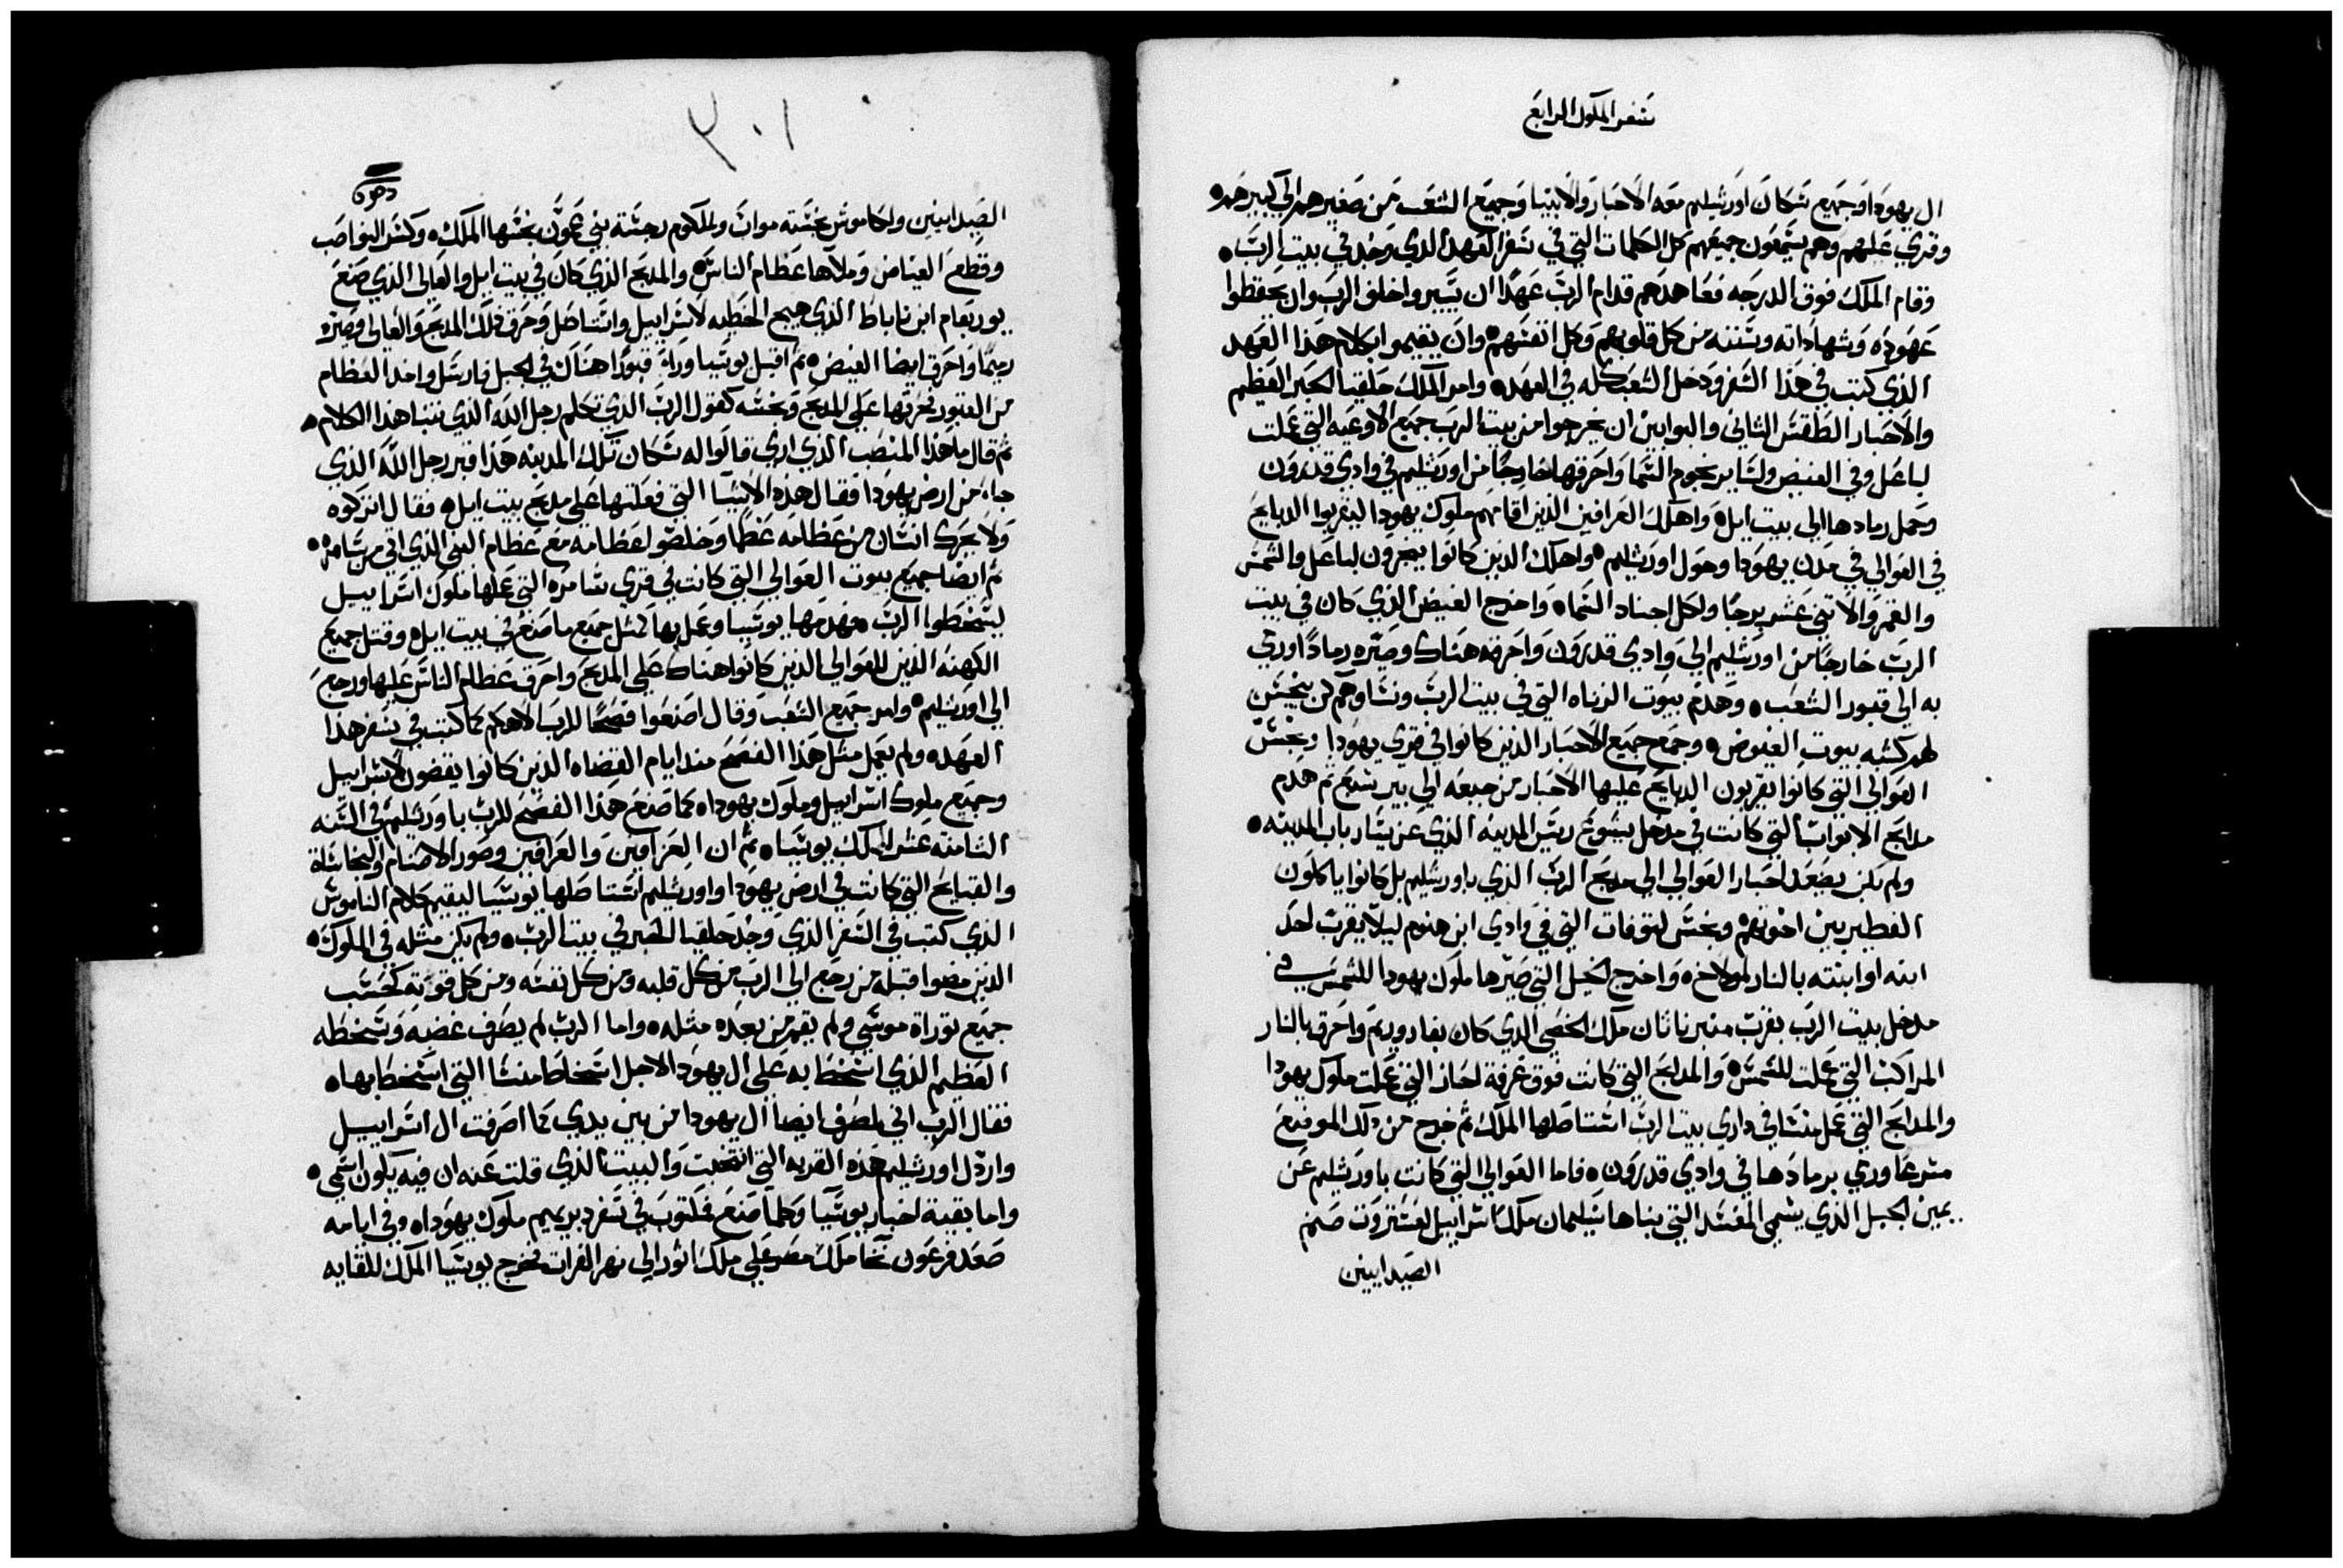 سفر الملوك الرابع
ال يهودا وجميع سكان اورشليم معه الاحبار والانبيا وجميع الشعب من صغيرهم الي كبيرهم ه
وقري عليهم وهم يسمعون جميعهم كل الكلمات التي في سفر العهد الذي وجد في بيت الرب ه
وقام الملك فوق الدرجه فعاهدهم قدام الرب عهدًا ان تسيروا خلف الرب وان يحفظوا
عهوده وشهاداته وسننه من كل قلوبهم وكل انفسهم ه وان يقيموا كلام هذا العهد
الذي كتب في هذا السفر ودخل الشعب كله في العهد ه وامر الملك حلقيا الحبر العظيم
والاحبار الطقس الثاني والبوابين ان يخرجوا من بيت الرب جميع الاوعيه التي عملت
لباعل وفي الغيض ولساير نجوم السما واحرقها خارجًا من اورشليم في وادي قدرون
وحمل رمادها الي بيت ايل ه واهلك العرافين الذين اقامهم ملوك يهودا ليقربوا الدبايح
في العوالي في مدن يهودا وحول اورشليم ه واهلك الذين كانوا يبخرون لباعل والشمس
والقمر والاثني عشر برجًا ولكل اجناد السما ه واخرج الغيض الذي كان في بيت
الرب خارجًا من اورشليم الي وادي قدرون واحرقه هناك وصيره رمادًا وري
به الي قبور الشعب ه وهدم بيوت الزناه التي في بيت الرب ونساوهم كن ينسجن
لهم كسبه بيوت الغيوض ه وجمع جميع الاحبار الذين كانوا في قري يهودا ونجس
العوالي التي كانوا يقربون الدبايح عليها الاحبار من جبعه الي بير سبع ثم هدم
مدابح الابواب التي كانت في مدخل يشوع ريس المدينه الذي عن يسار باب المدينه ه
ولم يكن يصعد احبار العوالي الي مدبح الرب الذي باورشليم بل كانوا ياكلون
الفطير بين اخوتهم ه ونجس لتوفات التي في وادي ابن هنوم ليلا يقرب احد
ابنه او ابنته بالنار لمولاخ ه واخرج الخيل التي صيرها ملوك يهودا للشمس في
مدخل بيت الرب بقرب منبر ناثان ملك الخصي الذي كان بفادوريم واحرق بالنار
المراكب التي عملت للشمس ه والمدابح التي كانت فوق غرفة احاز التي عملت ملوك يهودا
والمدابح التي عمل منسا في داري بيت الرب استاصلها الملك ثم خرج من دلك الموضع
مسرعًا وري برمادها في وادي قدرون ه فاما العوالي التي كانت باورشليم عن
يمين الجبل الذي يسمي المفسد التي بناها سليمان ملك اسراييل لعشتروت صنم
الصيدانيين
٣٠١
الصيدانيين ولكاموش نجسته مواب ولملكوم رجسة بني عمون نجسها الملك ه وكسر النواصب
وقطع الغياض وملاها عظام الناس ه والمدبح الذي كان في بيت ايل والعالي الذي صنع
يوربعام ابن ناباط الذي هيج الخطيه لاسراييل واستاصل وحرق ذلك المدبح والعالي وصيره
رميمًا واحرق ايضا الغيض ه ثم اقبل يوسيا وراي قبورًا هناك في الجبل فارسل واخد العظام
من القبور فحرقها علي المدبح ونجسه كقول الرب الذي تكلم رجل الله الذي تنبا هذا الكلام ه
ثم قال ما هذا المنصب الذي اري قالوا له سكان تلك المدينه هذا قبر رجل الله الذي
جاء من ارض يهودا فقال هذه الاشيا التي فعلتها علي مدبح بيت ايل ه فقال اتركوه
ولا يحرك انسان من عظامه عظمًا وخلصوا عظامه مع عظام النبي الذي اتي من سامره ه
ثم ايضا جميع بيوت العوالي التي كانت في قري سامره التي عملها ملوك اسراييل
ليسخطوا الرب ه فهدمها يوسيا وعمل بها كمثل جميع ما صنع في بيت ايل ه وقتل جميع
الكهنه الذين للعوالي الذين كانوا هناك علي المدبح واحرق عظام الناس عليها ورجع
الي اورشليم ه وامر جميع الشعب وقال اصنعوا فصحًا للرب الاهكم كما كتب في سفر هذا
العهد ه ولم يعمل مثل هذا الفصح مند ايام القضاه الذين كانوا يقضون لاسراييل
وجميع ملوك اسراييل وملوك يهودا ه كما صنع هذا الفصح للرب باورشليم في السنه
الثامنه عشر للملك يوسيا ه ثم ان العزافين والعرافين وصور الاصنام والنجاسة
والقبايح التي كانت في ارض يهودا واورشليم استاصلها يوسيا ليقيم كلام الناموس
الذي كتب في السفر الذي وجد حلقيا الحبر في بيت الرب ه ولم يكن مثله في الملوك ه
الذين مضوا قبله من رجع الي الرب من كل قلبه ومن كل نفسه ومن كل قوته كحسب
جميع توراة موسي ولم يقم من بعده مثله ه واما الرب لم يصرف غضبه وسخطه
العظيم الذي اسخط به علي ال يهودا لاجل اسخاط منسا التي اسخط بها ه
فقال الرب اني لمصرف ايضا ال يهودا من بين يدي كما اصرفت ال اسراييل
واردل اورشليم هذه القريه التي انتخبت والبيت الذي قلت عنه ان فيه يكون اسمي ه
واما بقية اخبار يوسيا وكلما صنع فمكتوب في سفر دبريميم ملوك يهودا ه وفي ايامه
صعد فرعون نخا ملك مصر علي ملك اثور الي نهر الفرات فخرج يوسيا الملك للقايه